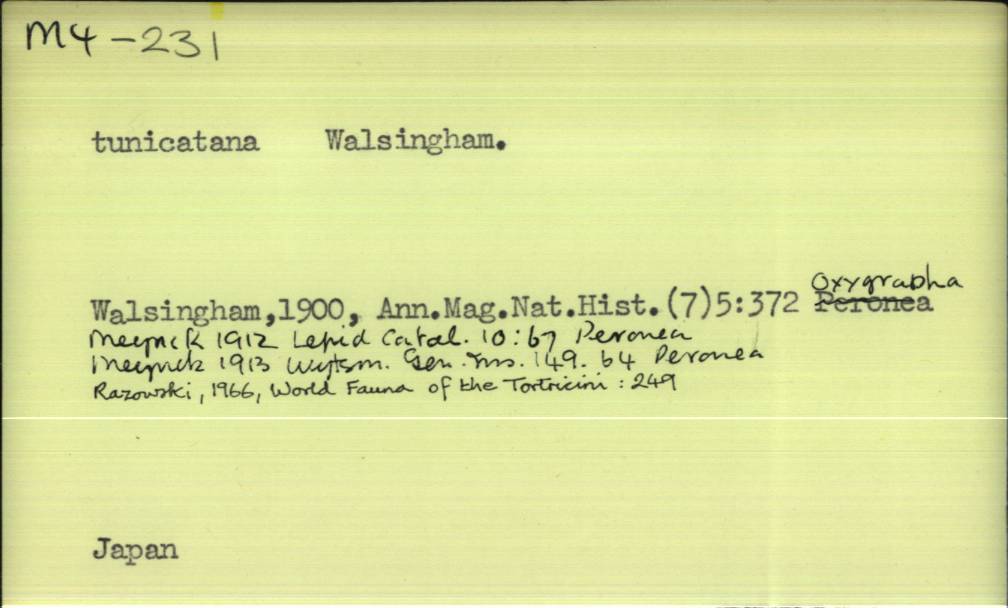 M4-231
tunicatana Walsingham.
Oxygrapha
Walsingham,1900, Ann.Mag.Nat.Hist.(7)5:372 Peronea
Meyrick 1912 Lepid Catal. 10:67 Peronea
Meyrick 1913 Wytsm. Gen. Ins. 149. 64 Peronea
Razowski, 1966, World Fauna of the Tortricini : 249
Japan